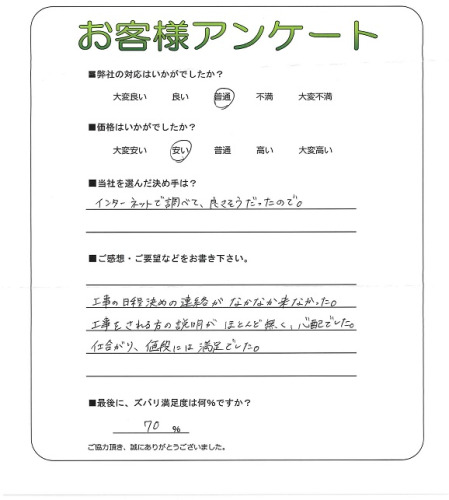 お客様アンケート
■弊社の対応はいかがでしたか?
大変良い 良い 普通 不満 大変不満
■価格はいかがでしたか?
大変安い 安い 普通 高い 大変高い
■当社を選んだ決め手は?
インターネットで調べて、良さそうだったので。
■ご感想・ご要望などをお書き下さい。
工事の日程決めの連絡が なかなか来なかった。
工事をされる方の説明が ほとんど無く、心配でした。
仕上がり、値段には満足でした。
■最後に、ズバリ満足度は何%ですか?
70 %
ご協力頂き、誠にありがとうございました。